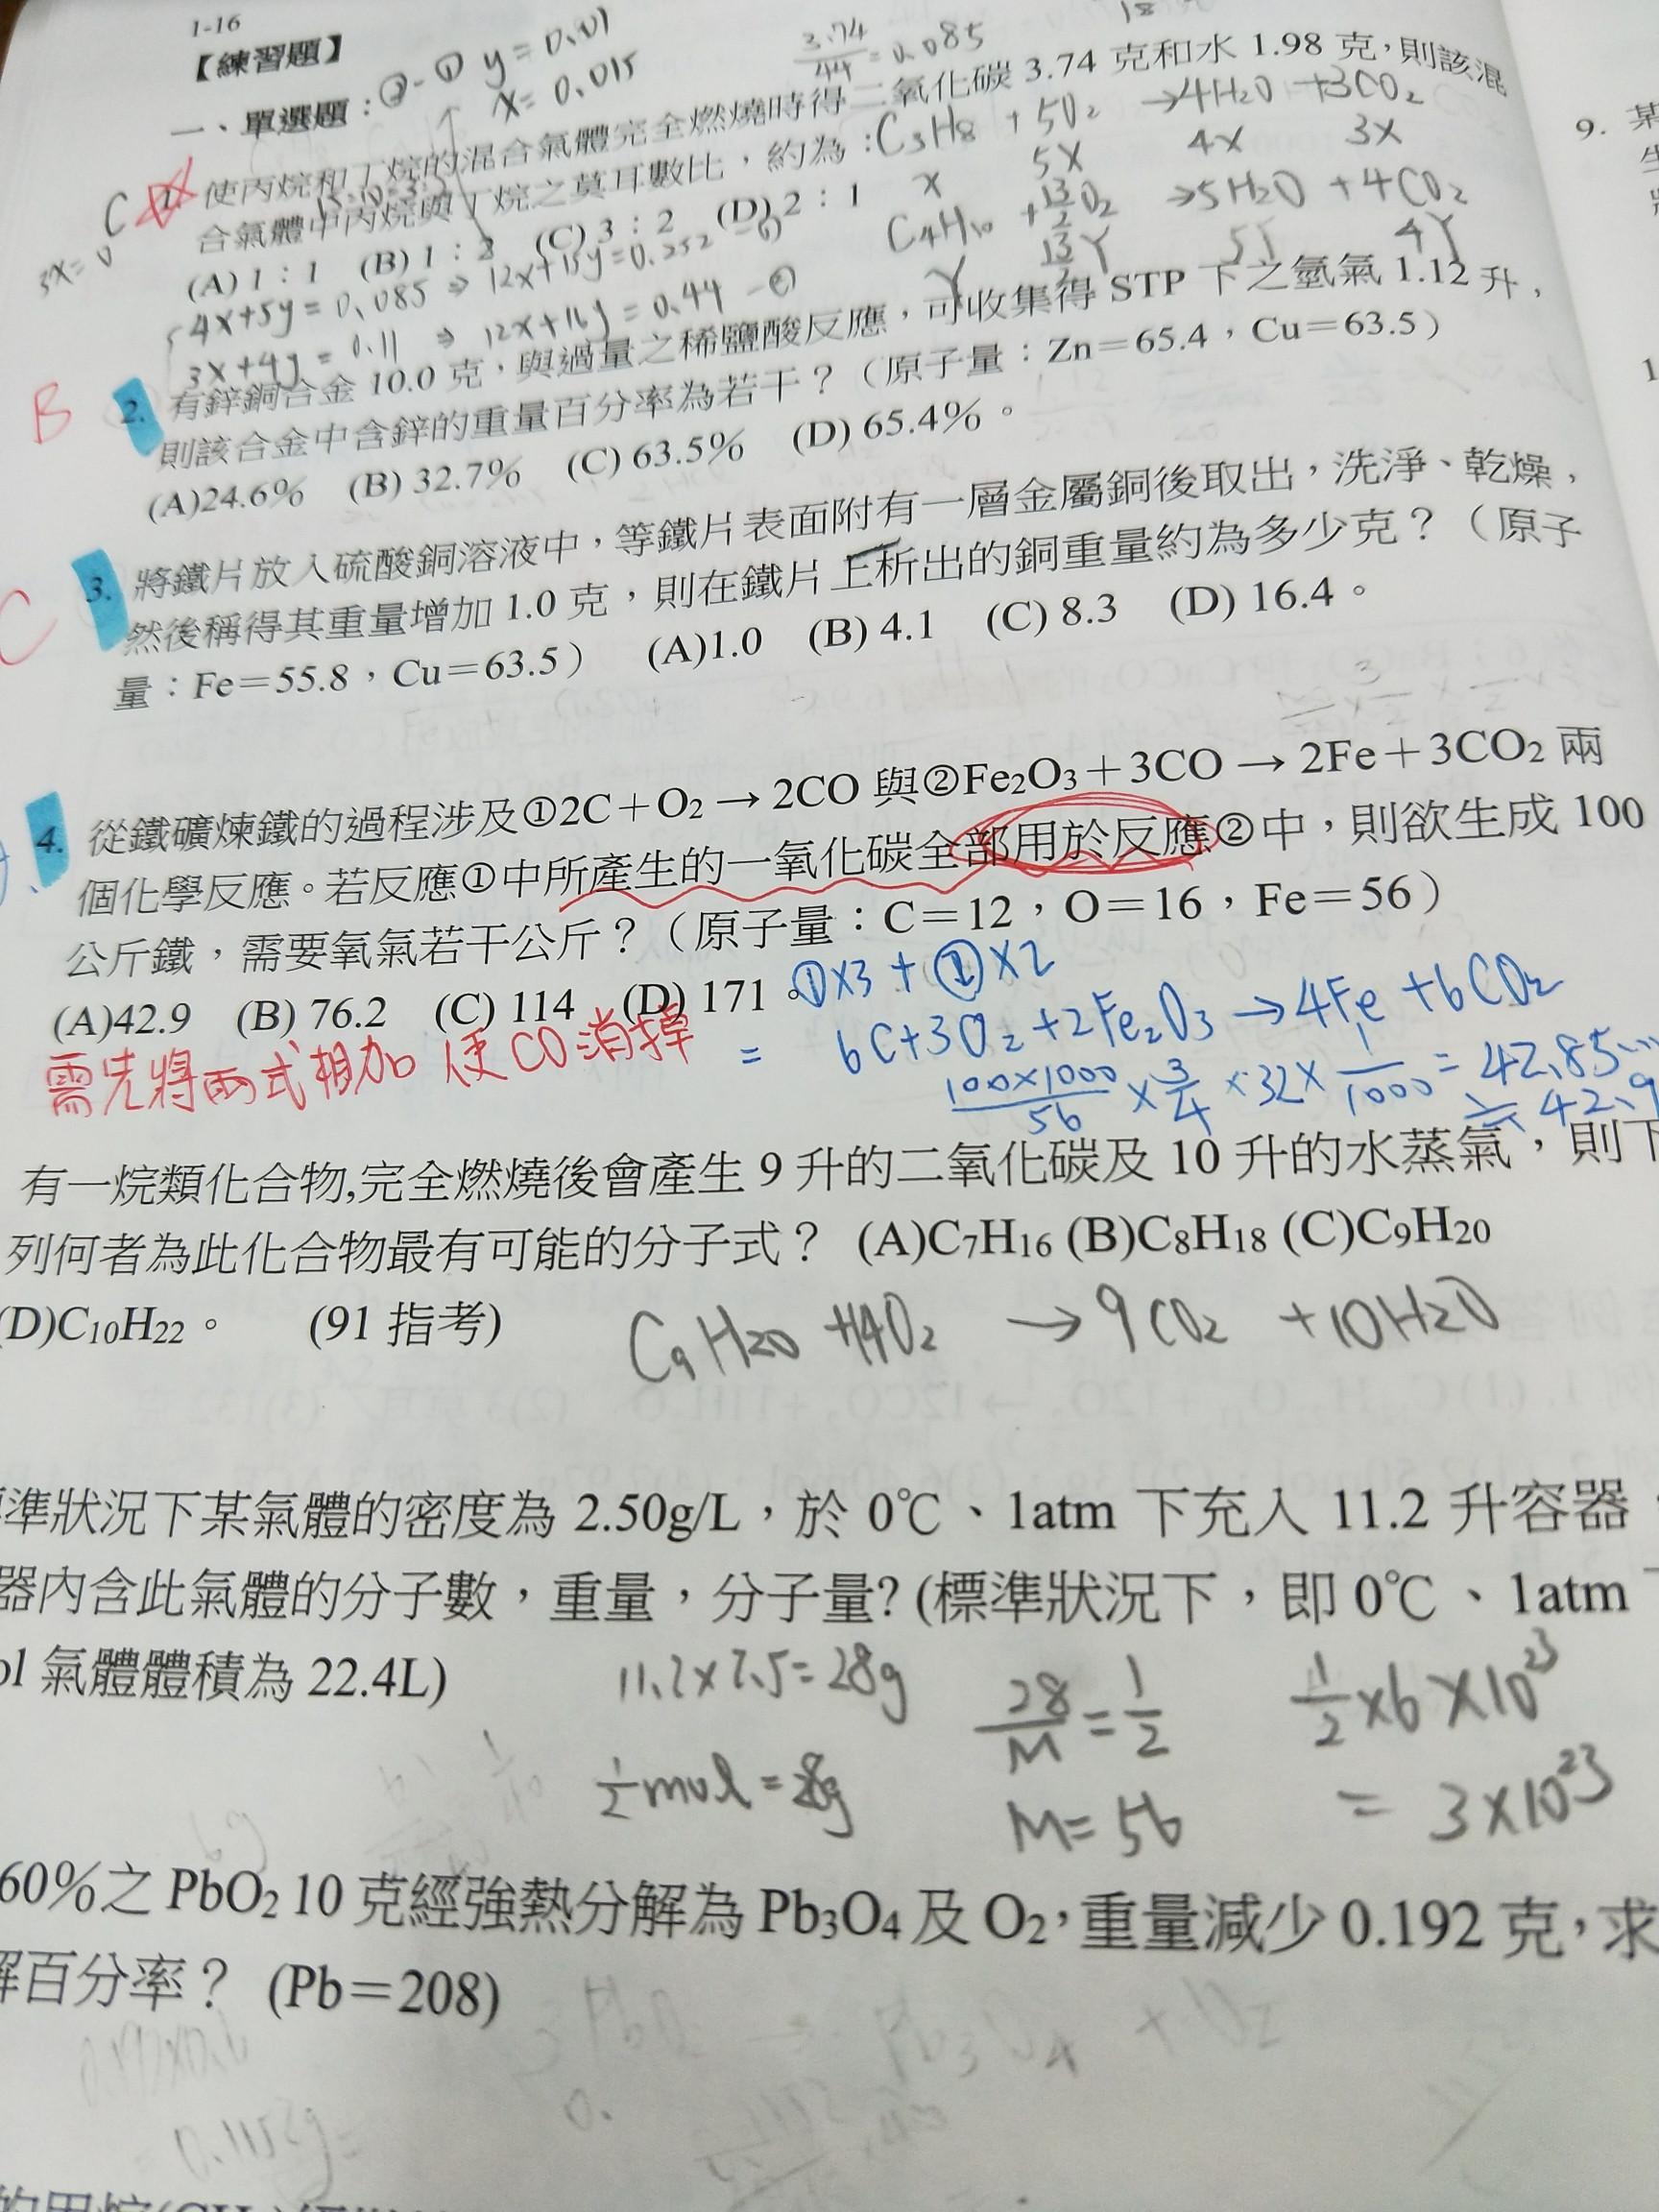 1-16
【練習題】
②-① y=0.01
x=0.015
3.74/44=0.085
一、單選題：
C 1. 使丙烷和丁烷的混合氣體完全燃燒時得二氧化碳 3.74 克和水 1.98 克，則該混
合氣體中丙烷與丁烷之莫耳數比，約為：
(A) 1：1 (B) 1：2 (C) 3：2 (D) 2：1
C3H8 + 5O2 →4H2O +3CO2
x 5x 4x 3x
C4H10 + 13/2 O2 →5H2O + 4CO2
Y 13/2 Y 5Y 4Y
4x+5y=0.085 ⇒ 12x+15y=0.252 -①
3x+4y=0.11 ⇒ 12x+16y=0.44 -②
B 2. 有鋅銅合金 10.0 克，與過量之稀鹽酸反應，可收集得 STP 下之氫氣 1.12 升，
則該合金中含鋅的重量百分率為若干？（原子量：Zn＝65.4，Cu＝63.5）
(A)24.6% (B) 32.7% (C) 63.5% (D) 65.4%。
C 3. 將鐵片放入硫酸銅溶液中，等鐵片表面附有一層金屬銅後取出，洗淨、乾燥，
然後稱得其重量增加 1.0 克，則在鐵片上析出的銅重量約為多少克？（原子
量：Fe＝55.8，Cu＝63.5） (A)1.0 (B) 4.1 (C) 8.3 (D) 16.4。
4. 從鐵礦煉鐵的過程涉及①2C＋O2→2CO 與②Fe2O3＋3CO → 2Fe＋3CO2 兩
個化學反應。若反應①中所產生的一氧化碳全部用於反應②中，則欲生成 100
公斤鐵，需要氧氣若干公斤？（原子量：C＝12，O＝16，Fe＝56）
(A)42.9 (B) 76.2 (C) 114 (D) 171。
①X3 + ②X2
需先將兩式相加 使CO消掉
= 6C+3O2+2Fe2O3→4Fe+6CO2
100×1000/56 × 3/4 ×32× 1/1000 = 42.85…
≒42.9
有一烷類化合物,完全燃燒後會產生 9 升的二氧化碳及 10 升的水蒸氣，則下
列何者為此化合物最有可能的分子式？ (A)C7H16 (B)C8H18 (C)C9H20
(D)C10H22。 (91 指考)
C9H20 +14O2 → 9CO2 +10H2O
準狀況下某氣體的密度為 2.50g/L，於 0℃、1atm 下充入 11.2 升容器，
器內含此氣體的分子數，重量，分子量? (標準狀況下，即 0℃、1atm
ol 氣體體積為 22.4L)
11.2×2.5=28g
28/M=1/2
1/2×6×10^23
1/2mol=28g
M=56
=3×10^23
60%之 PbO2 10 克經強熱分解為 Pb3O4 及 O2，重量減少 0.192 克，求
解百分率？ (Pb＝208)
9. 某